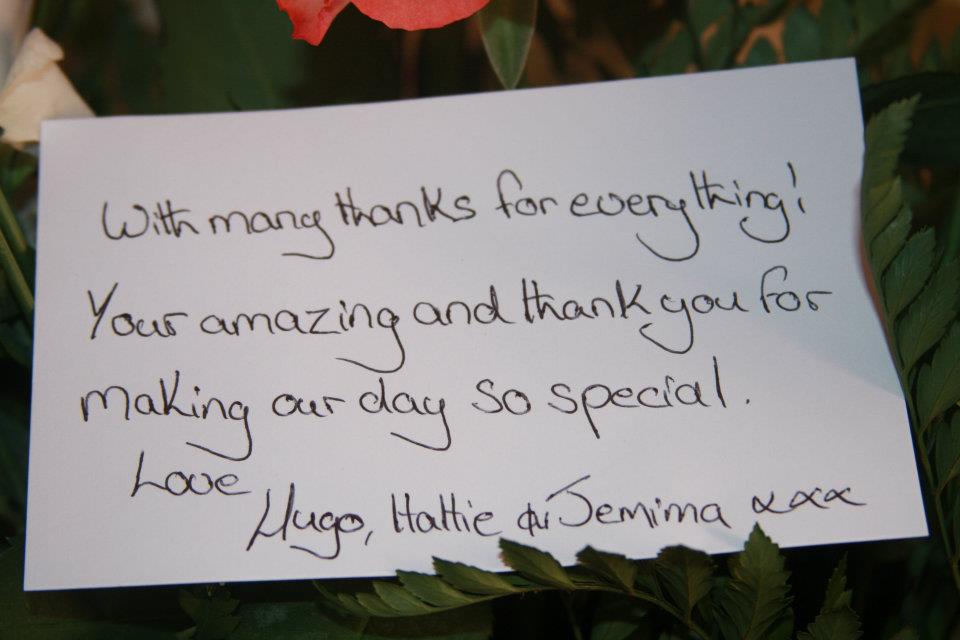 With many thanks for everything!
Your amazing and thank you for
making our day so special.
Love
Hugo, Hattie & Jemima xxx